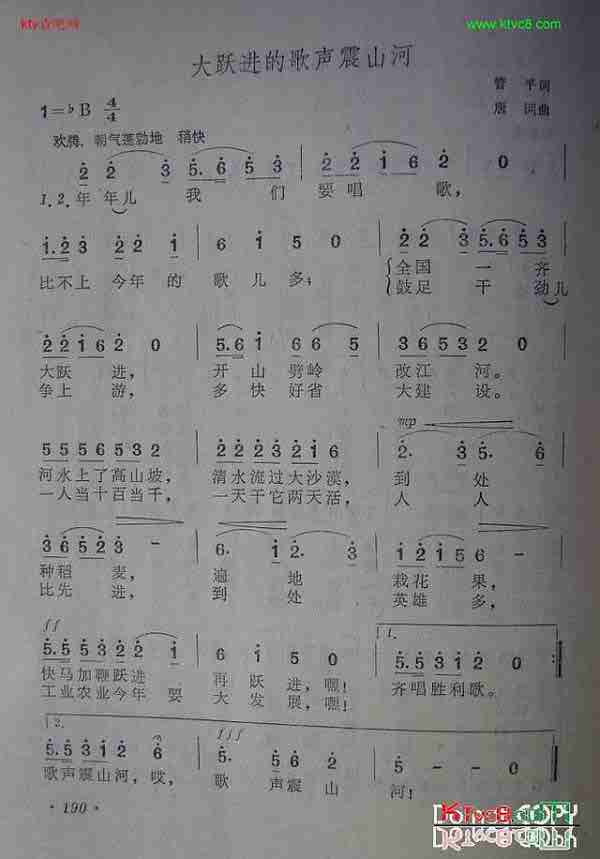 ktv音吧网
www.ktvc8.com
大跃进的歌声震山河
管 平词
唐 诃曲
1=♭B 4/4
欢腾、朝气蓬勃地 稍快
2 2 3 5. 6 5 3 2 2 1 6 2 0
1.2.年 年儿 我 们 要唱 歌,
1. 2 3 2 2 1 6 1 5 0 2 2 3 5. 5 3
比不上 今年 的 歌 儿 多; 全国 一 齐
鼓足 干 劲儿
2 2 1 6 2 0 5. 6 1 6 5 6 3 6 5 3 5 0
大跃 进, 开 山 劈岭 改江 河。
争上 游, 多 快 好省 大建 设。
mp
5 5 5 6 5 3 2 2 2 2 3 2 1 6 2. 5. 6
河水上了高山坡, 清水流过大沙漠, 到 处
一人当十百当千, 一天干它两天活, 人 人
3 6 5 2 3 – 6. 1 2. 3 1 2 1 5 6
种稻 麦, 遍 地 栽花 果,
比先 进, 到 处 英雄 多,
ff 1.
5. 5 5 3 2 2 1 6 1 5 0 5. 5 3 1 2 0
快马加鞭跃进 再 跃 进,嘿! 齐唱胜利歌。
工业农业今年 要 大 发 展,嘿!
2. fff
5. 5 3 1 2 6 5. 5 6 1 2 – – 0
歌声震山河,哎, 歌 声震 山 河!
· 190 ·
DONOT COPY
Ktvc8.com